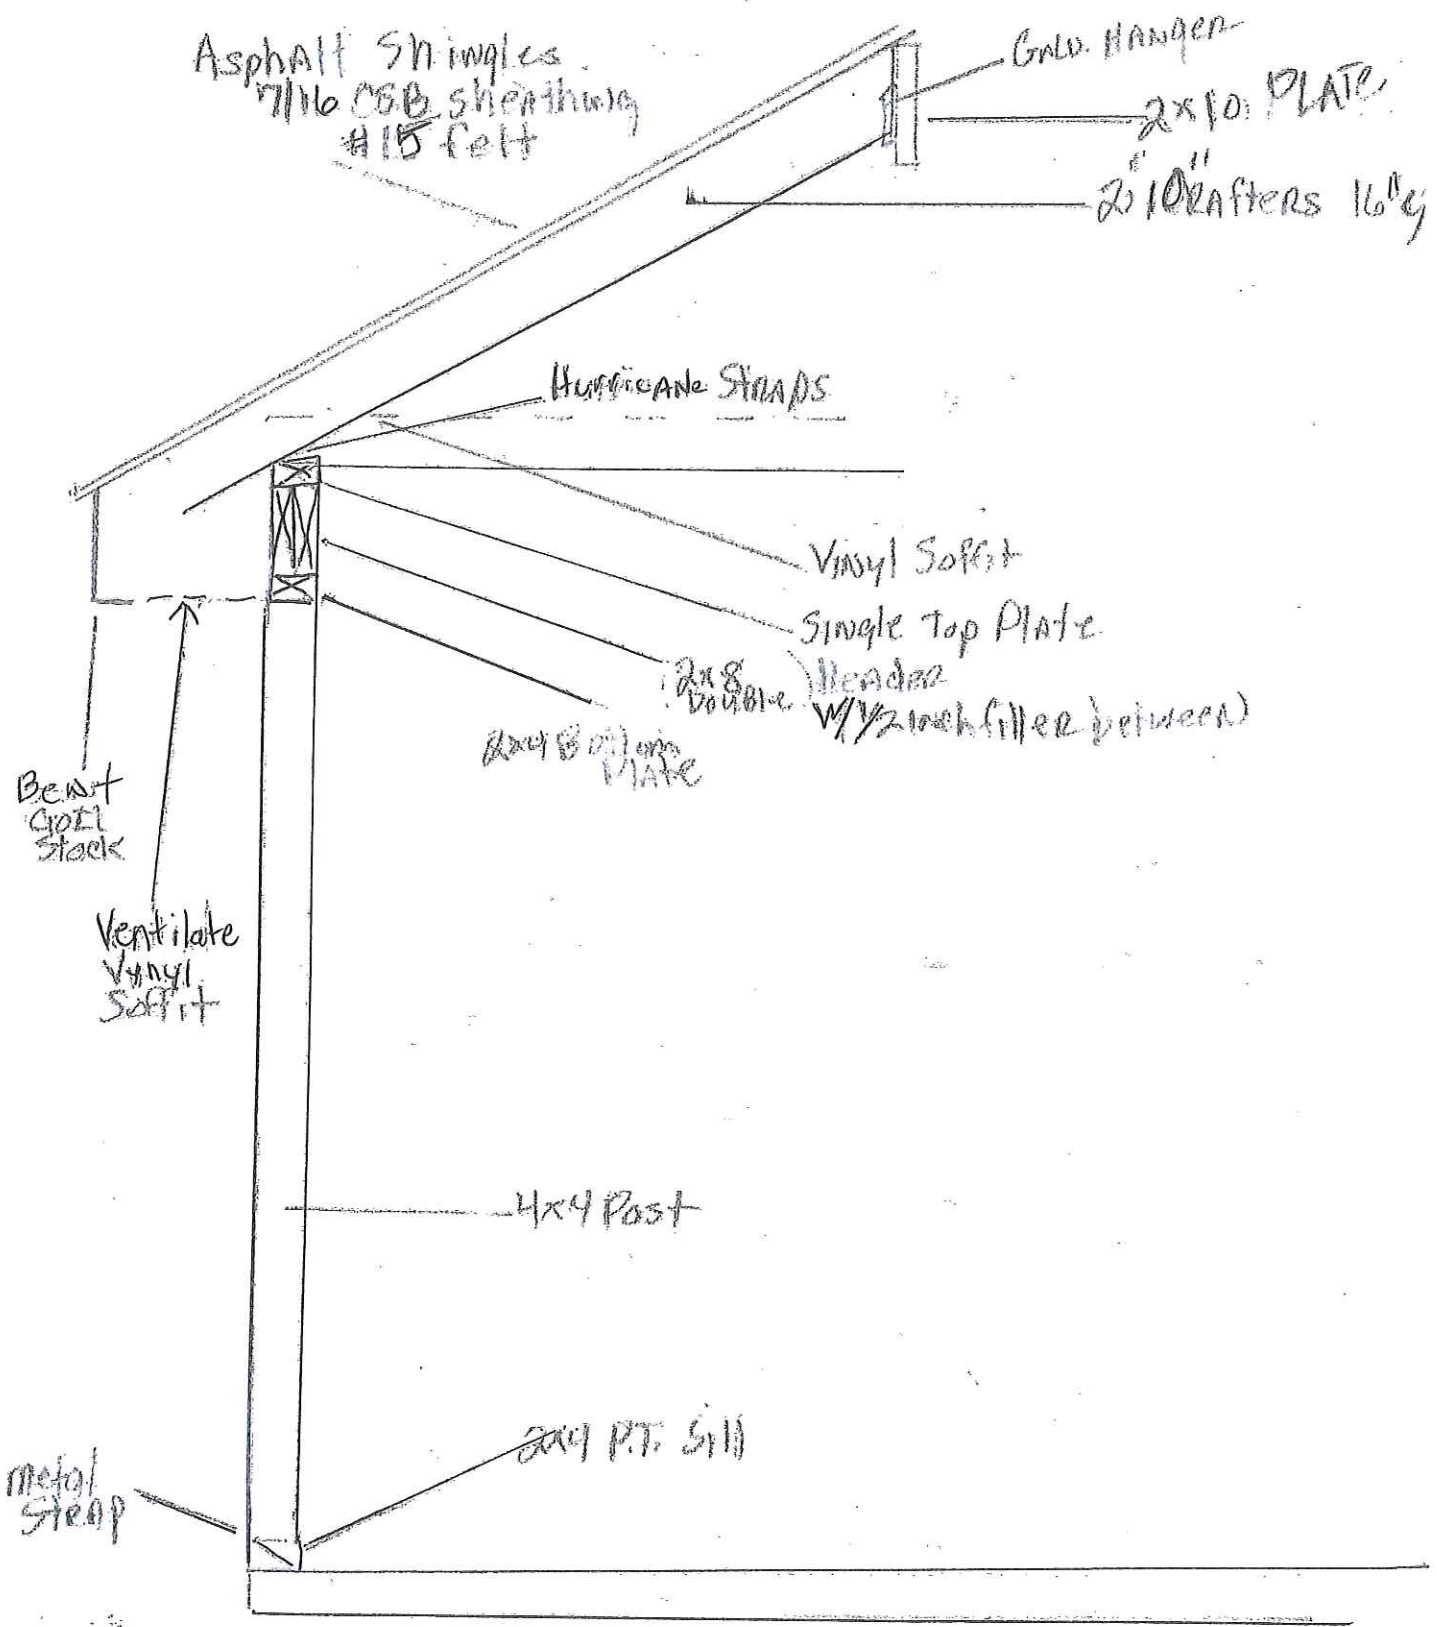 Asphalt Shingles
7/16 OSB sheathing
#15 felt
Galv. Hanger
2x10 PLATE
2"10" Rafters 16"
Hurricane Straps
Vinyl Soffit
Single Top Plate
2x8 Double) Header
W/ 1/2 inch filler between)
2x4 Bottom
Plate
Bent
Coil
Stock
Ventilate
Vynyl
Soffit
4x4 Post
2x4 P.T. Sill
metal
Strap